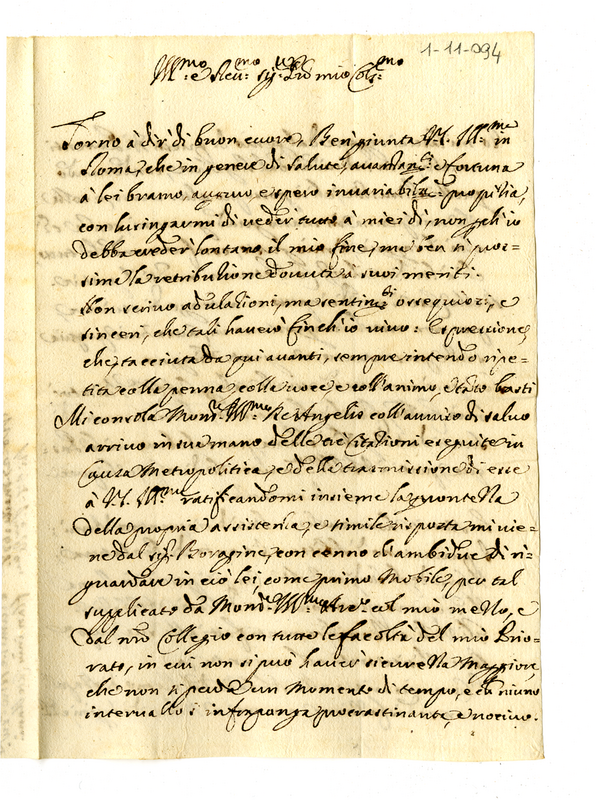 1-11-094
Ill.mo e Rev.mo Sig.r P.rõn mio Col.mo
Torno à dir di buon cuore, Ben giunta V. S. Ill.me in
Roma, che in genere di salute, avanzam.ti e fortuna
à lei bramo, auguro e spero invariabilm.te propitia,
con lusingarmi di veder tutto à miei dì, non già io
debba veder lontano il mio fine, ma ben sì pros=
sima la retributione dovuta à suoi meriti.
Non scrivo adulationi, ma sentim.ti ossequiosi, e
sinceri, che tali haverò finch'io vivo: Espressione,
che, tacciuta da qui avanti, sempre intendo ripe=
tita colla penna, colla voce, e coll'animo, e tanto basti
Mi consola Mons.r Ill.mo De Angelis coll'avviso di salvo
arrivo in sua mano delle tre Citationi eseguite in
Causa Metropolitica, e della trasmissione di esse
à V. S. Ill.ma ratificandomi insieme la prontezza
della propria assistenza, e simile risposta mi vie=
ne dal sig.r Boragine, con cenno ch'ambidue di ri=
guardare in ciò lei, come primo Mobile, per tal
supplicato da Mons.r Ill.mo col mio mezzo, e
dal nr̃o Collegio con tutte le facoltà del mio Prio=
rato, in cui non si può haver sicurezza Maggiore,
che non si perda un Momento di tempo, e ch niuno
intervallo s'infraponga procrastinante, e nocivo.